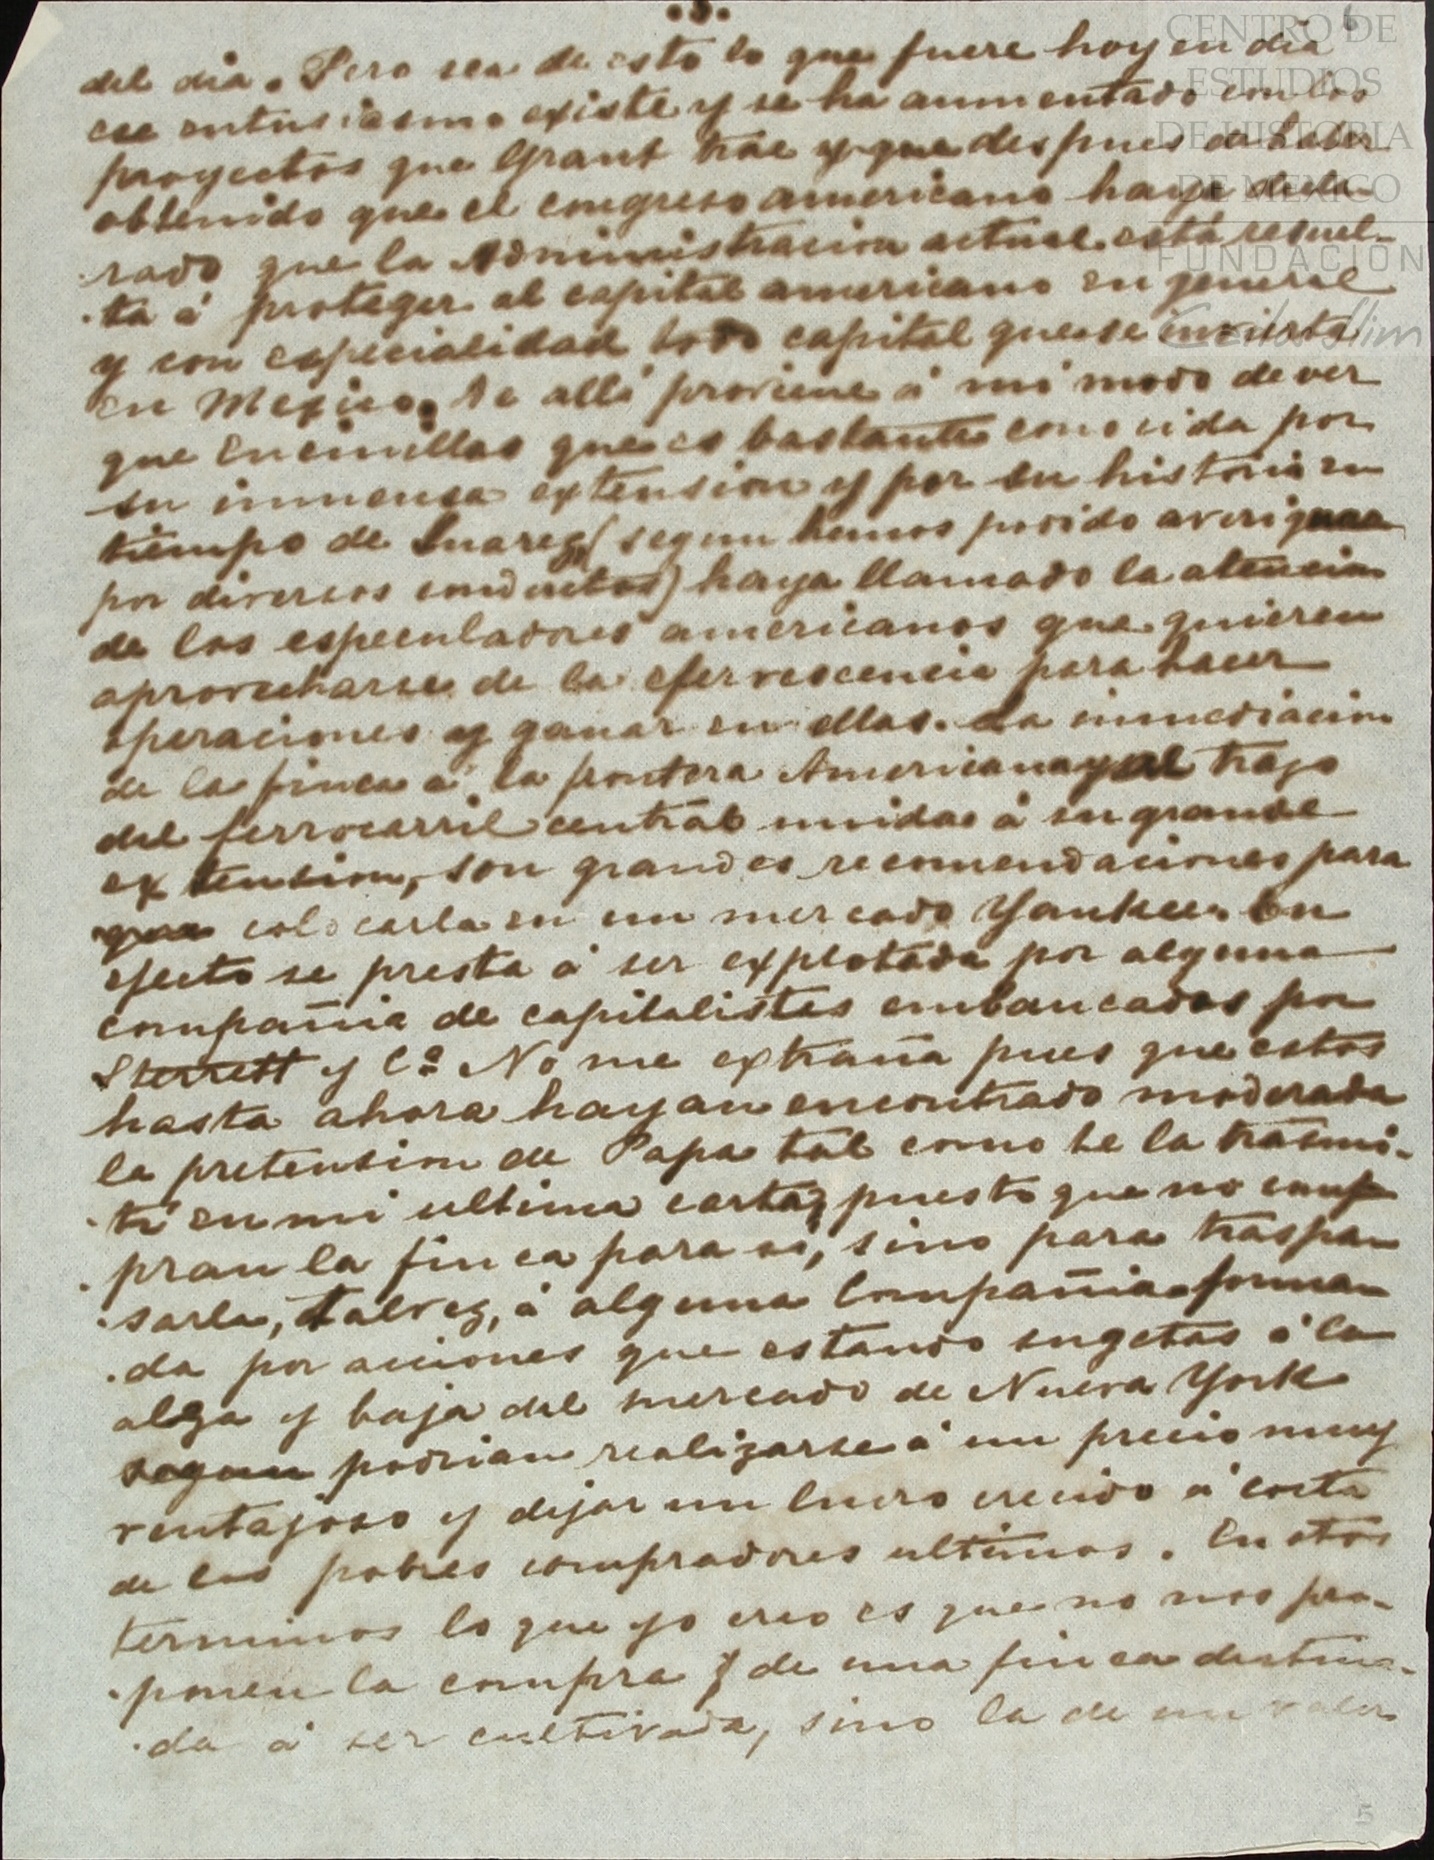 .3.
6
CENTRO DE
ESTUDIOS
DE HISTORIA
DE MEXICO
FUNDACIÓN
Carlos Slim
del dia. Pero sea de esto lo que fuere hoy en dia
ese entusiasmo existe y se ha aumentado con los
proyectos que Grant trae y que despues de haber
obtenido que el congreso americano haya decla-
rado que la Administracion actual está resuel-
ta á proteger al capital americano en general
y con especialidad todo capital que se invierta
en Mexico. De allí proviene á mi modo de ver
que Encinillas que es bastante conocida por
su inmensa extension y por su historia en
tiempo de Juarez (segun hemos podido averiguar
por diversos conductos) haya llamado la atencion
de los especuladores americanos que quieren
aprovecharse de la efervescencia para hacer
operaciones y ganar en ellas. La inmediacion
de la finca á la frontera Americana y al trazo
del ferrocarril central unidas á su grande
extension, son grandes recomendaciones para
que colocarla en un mercado Yankee. En
efecto se presta á ser explotada por alguna
compañia de capitalistas embaucados por
Sterrett y Cª No me extraña pues que estos
hasta ahora hayan encontrado moderada
la pretension de Papa tal como se la trasmi-
tí en mi ultima carta, puesto que no com-
pran la finca para si, sino para traspa-
sarla, talvez, á alguna Compañia forma-
da por acciones que estando sugetas á la
alza y baja del mercado de Nueva York
segun podrian realizarse á un precio muy
ventajoso y dejar un lucro crecido á costa
de los pobres compradores ultimos. En otros
terminos lo que yo creo es que no nos pro-
ponen la compra de una finca destina-
da á ser cultivada, sino la de un valor
5